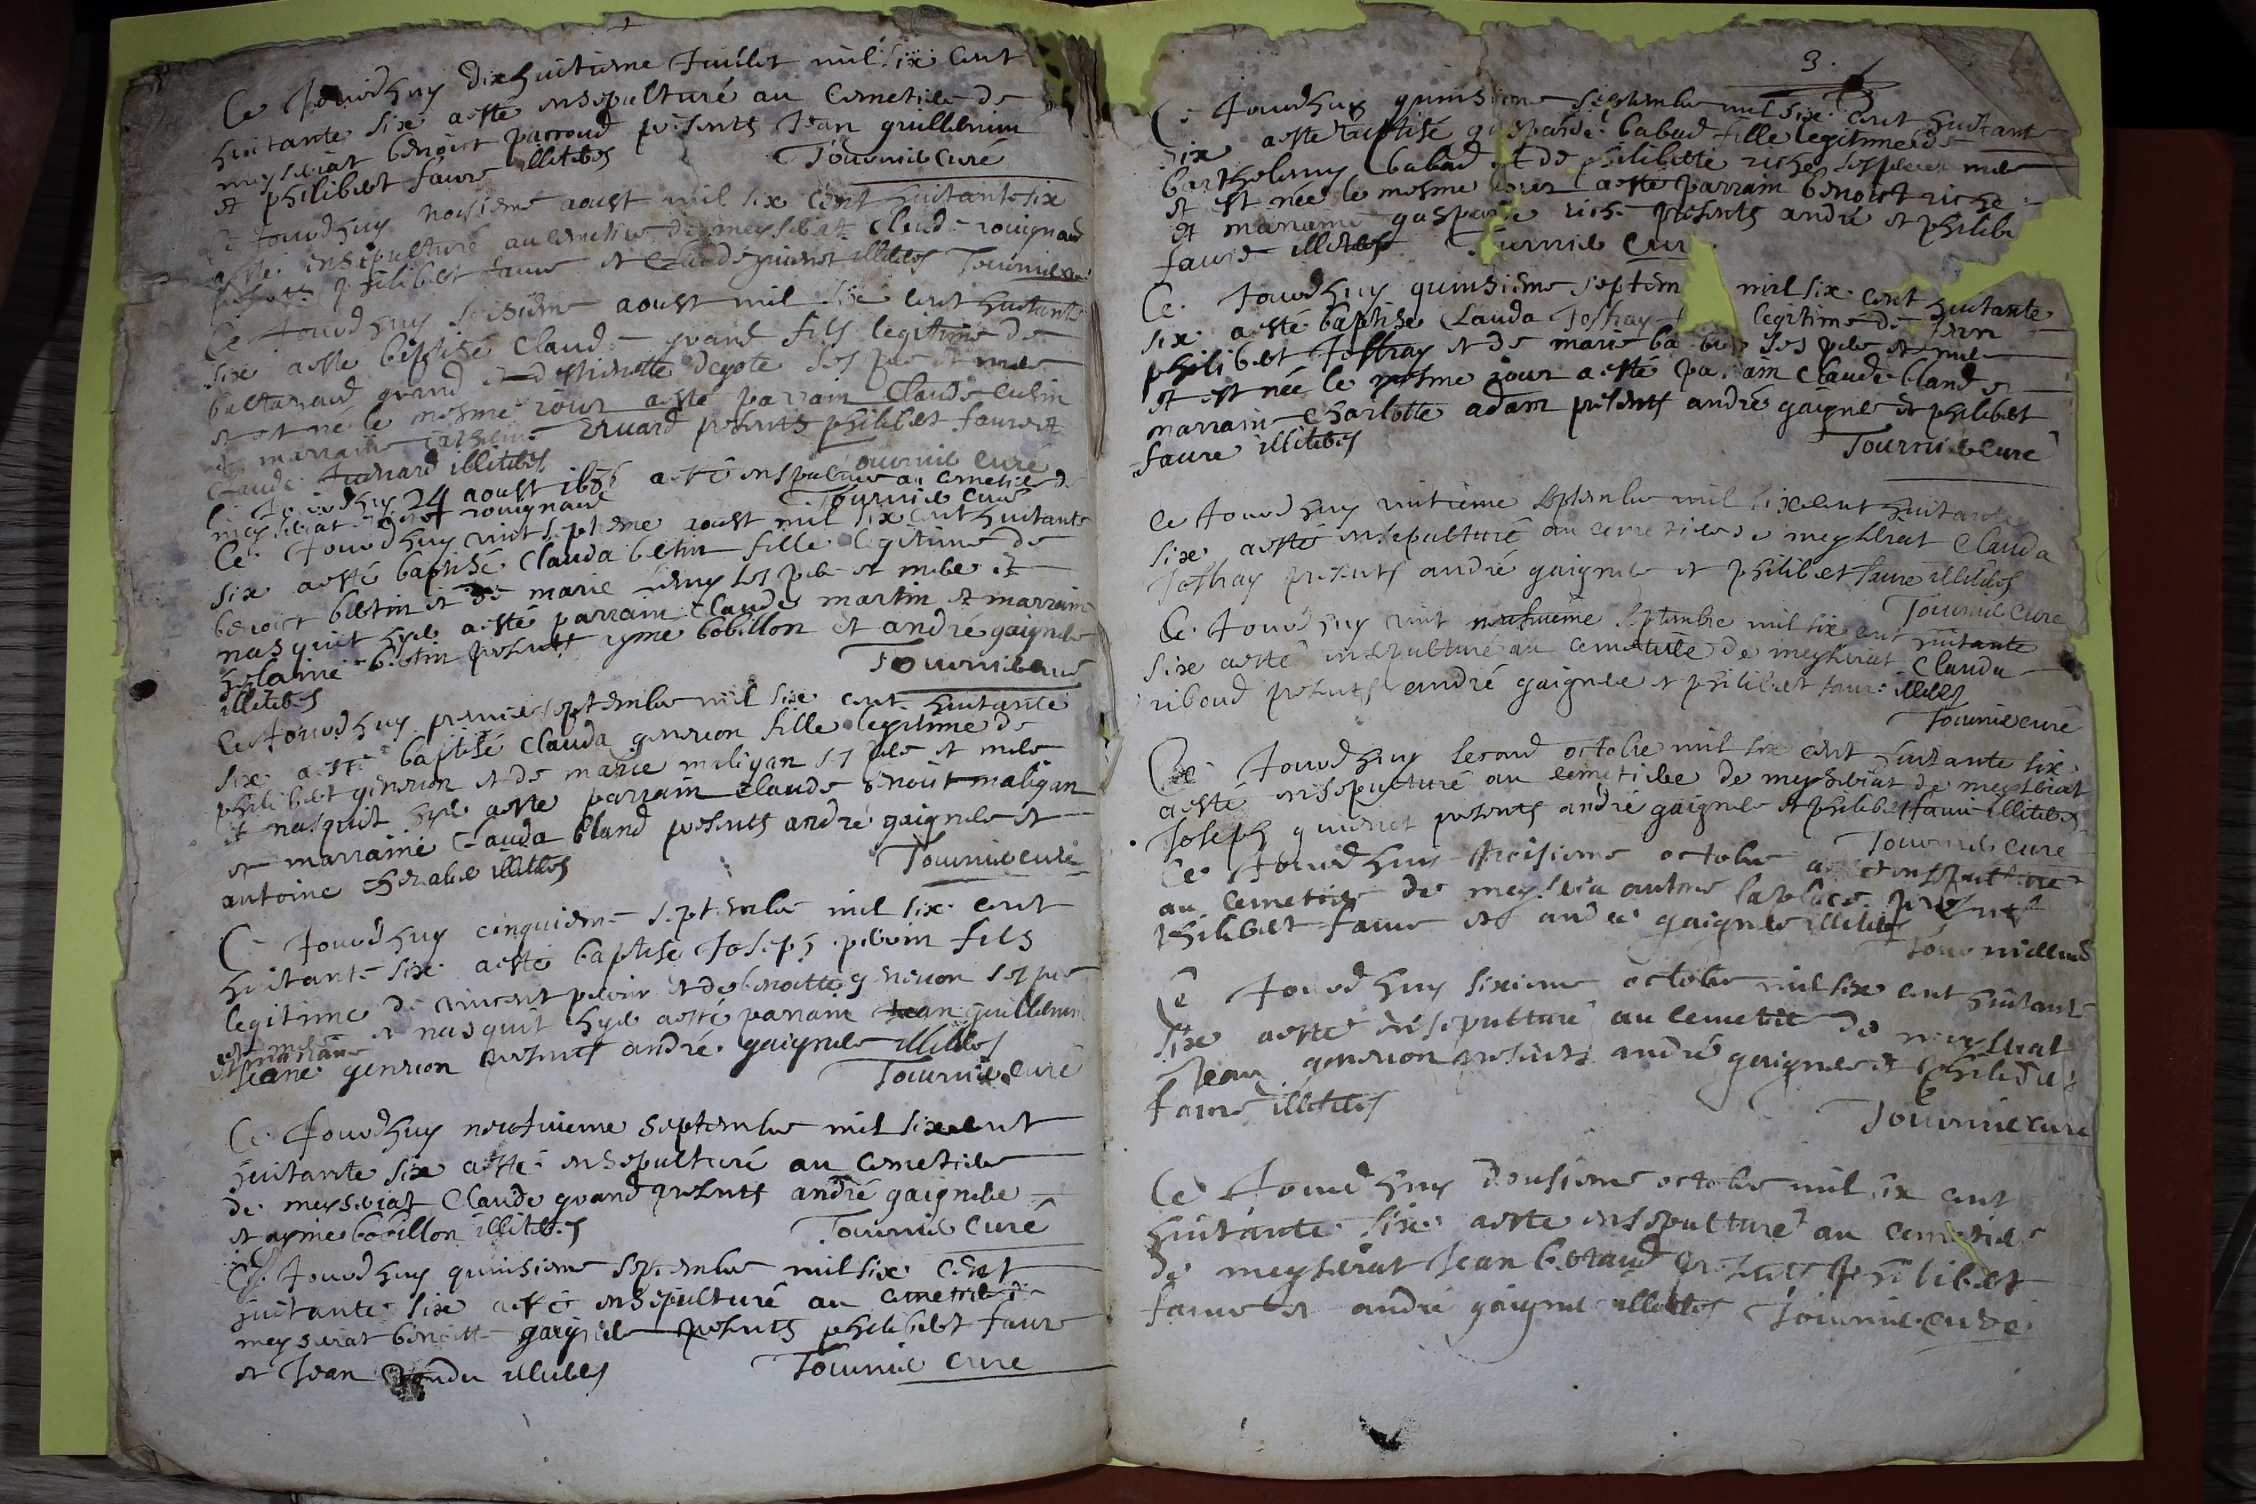 Ce Jourdhuy dixhuitieme Juillet mil six cent
huitante six aesté ensepulturé au Cemetiere de
meyseriat benoict parroud presents Jean guillermin
et philibert faure illiteres Tournier Curé
Ce Jourdhuy aoust mil six cent huitante six
aesté ensepulturé au cemetiere de meyseriat Claude rouignard
philibert faure et Claude guionet illiteres Tournier
Ce Jourdhuy aoust mil six cent huitante
six aesté baptisé Claude grand fils legitime de
grand et ses pere et mere
et est né le mesme iour aesté parrain Claude cusin
et marraine presents philibert faure et
Claude illiteres Tournier Curé
Ce Jourdhuy 24 aoust 1686 aesté ensepulturé au cemetiere de
meyseriat rouignard Tournier curé
Ce Jourdhuy vint septieme aoust mil six cent huitante
six aesté baptisé Clauda betin fille legitime de
benoict betin et de marie ses pere et mere et
nasquit hyer aesté parrain Claude martin et marraine
betin presents yme bobillon et andré gaignere
illiteres Tournier curé
Ce Jourdhuy premier septembre mil six cent huitante
six aesté baptisé Clauda genrion fille legitime de
philibert genrion et de marie maligan ses pere et mere
et nasquit hyer aesté parrain Claude benoit maligan
et marraine Clauda bland presents andré gaignere et
antoine illiteres Tournier curé
Ce Jourdhuy cinquieme septembre mil six cent
huitante six aesté baptisé Joseph fils
legitime de vincent et de benoitte genrion ses pere
et mere et nasquit hyer aesté parrain Jean guillermin
et marraine
Jeane genrion presents andré gaignere illiteres
Tournier curé
Ce Jourdhuy neufvieme septembre mil six cent
huitante six aesté ensepulturé au Cemetiere
de meyseriat Claude grand presents andré gaignere
et ayme bobillon illiteres Tournier Curé
Ce Jourdhuy quinsieme septembre mil six cent
huitante six aesté ensepulturé au cemetiere de
meyseriat benoitte gaignere presents philibert faure
et Jean illiteres Tournier Cure
3.
Ce Jourdhuy quinsieme septembre mil six cent huitante
six aesté baptisé gasparde babad fille legitime de
barthelemy babad et de philiberte riche ses pere et mere
et est née le mesme iour aesté parrain benoict riche
et marraine gasparde riche presents andré et philibe
faure illiteres Tournier Cur
Ce Jourdhuy quinsieme septem mil six cent huitante
six aesté baptisé Clauda Joffray legitime de
philibert Joffray et de marie ses pere et mere
et est née le mesme iour aesté pa ain Claude bland et
marraine Charlotte adam presents andré gaignere et philibert
faure illiteres Tournier curé
Ce Jourdhuy vintieme septembre mil six cent huitante
six aesté ensepulturé au cemetiere de meyseriat Clauda
Joffray presents andré gaignere et philibert faure illiteres
Tournier Cure
Ce Jourdhuy vint neufvieme septembre mil six cent huitante
six aesté ensepulturé au cemetiere de meyseriat Clauda
riboud presents andré gaignere et philibert faure illiteres
Tournier curé
Ce Jourdhuy second octobre mil six cent huitante six
aesté ensepulturé au cemetiere de meyseriat de meyseriat
Joseph presents andré gaignere et philibert faure illiteres
Tournier cure
Ce Jourdhuy troisieme octobre aesté ensepulturé
au cemetiere de meyseria antoine laplace presents
philibert faure et andré gaignere illiteres
Tournier curé
Ce Jourdhuy sixieme octobre mil six cent huitante
six aesté ensepulturé au cemetiere de meyseriat
Jean genrion presents andré gaignere et philibert
faure illiteres
Tournier curé
Ce Jourdhuy dousieme octobre mil six cent
huitante six aesté ensepulturé au cemetiere
de meyseriat Jean beraud presents philibert
faure et andré gaignere illiteres Tournier curé